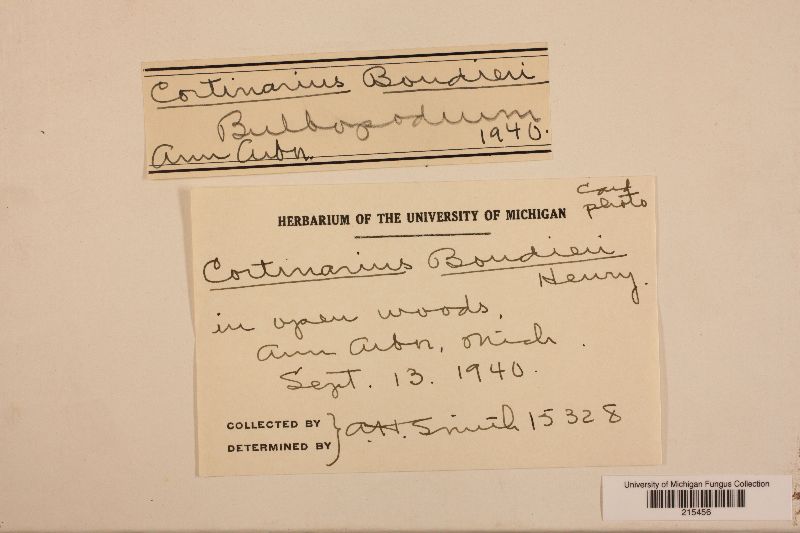 Cortinarius Boudieri
Bulbopodium
Ann Arbor. 1940.
Card photo
HERBARIUM OF THE UNIVERSITY OF MICHIGAN
Cortinarius Boudieri
Henry.
in open woods,
Ann Arbor, Mich.
Sept. 13. 1940.
COLLECTED BY
DETERMINED BY } A.H. Smith 15328
University of Michigan Fungus Collection
215456